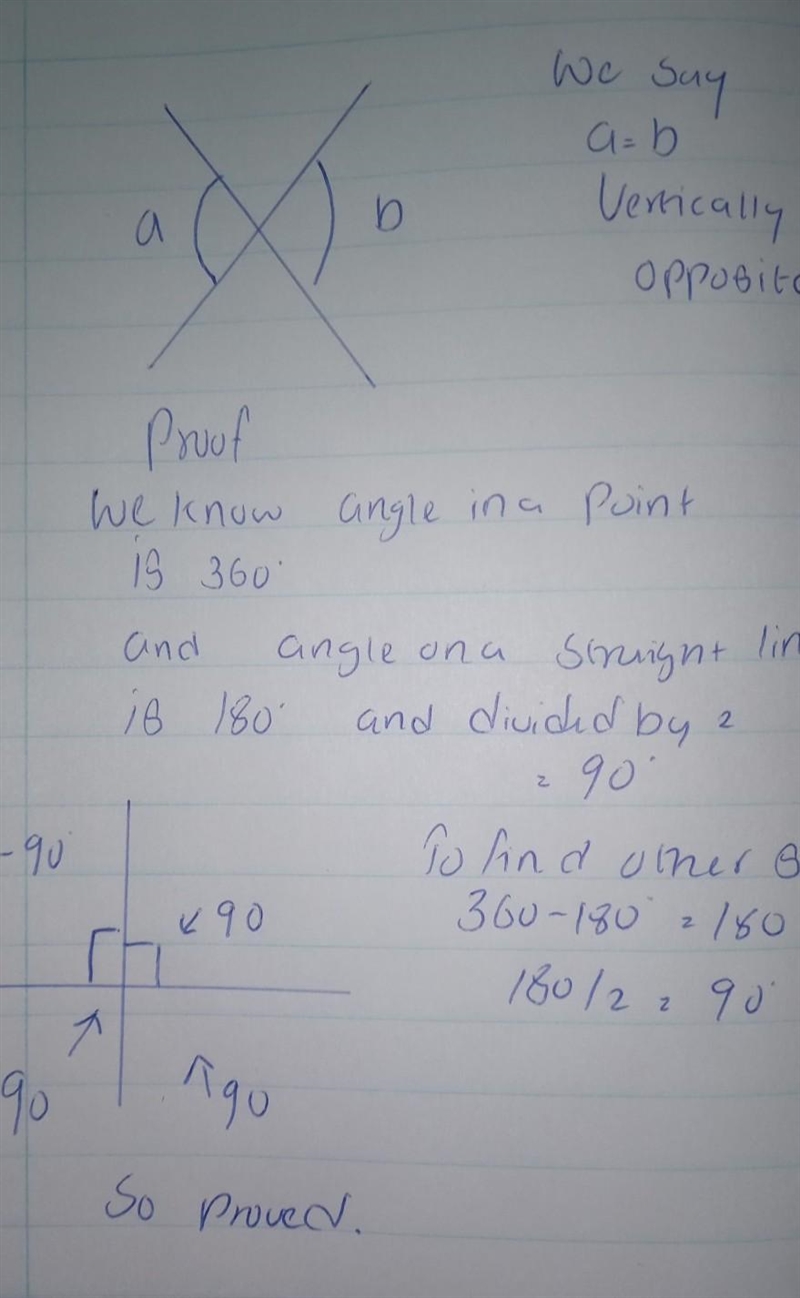 We say
a = b
Vertically
a b
opposite
Proof
We know angle in a point
is 360°
and angle on a straight lin
is 180° and divided by 2
= 90°
-90° To find other
90 360-180° = 180
180/2 = 90°
90 90
So proved.